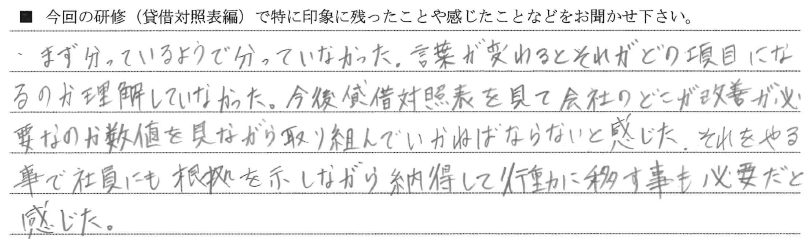 ■ 今回の研修（貸借対照表編）で特に印象に残ったことや感じたことなどをお聞かせ下さい。
・まず分っているようで分っていなかった。言葉が変わるとそれがどの項目にな
るのか理解していなかった。今後貸借対照表を見て会社のどこが改善が必
要なのか数値を見ながら取り組んでいかねばならないと感じた。それをやる
事で社員にも根拠を示しながら納得して行動に移す事も必要だと
感じた。